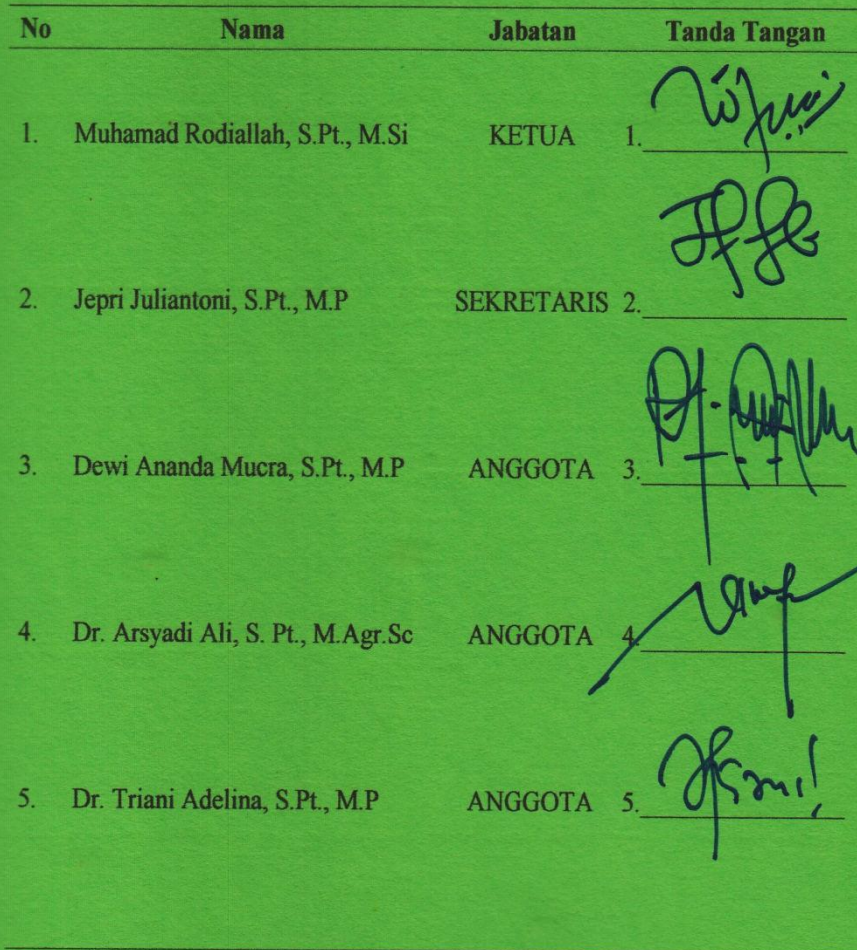 No Nama Jabatan Tanda Tangan
1. Muhamad Rodiallah, S.Pt., M.Si KETUA 1.
2. Jepri Juliantoni, S.Pt., M.P SEKRETARIS 2.
3. Dewi Ananda Mucra, S.Pt., M.P ANGGOTA 3.
4. Dr. Arsyadi Ali, S. Pt., M.Agr.Sc ANGGOTA 4.
5. Dr. Triani Adelina, S.Pt., M.P ANGGOTA 5.